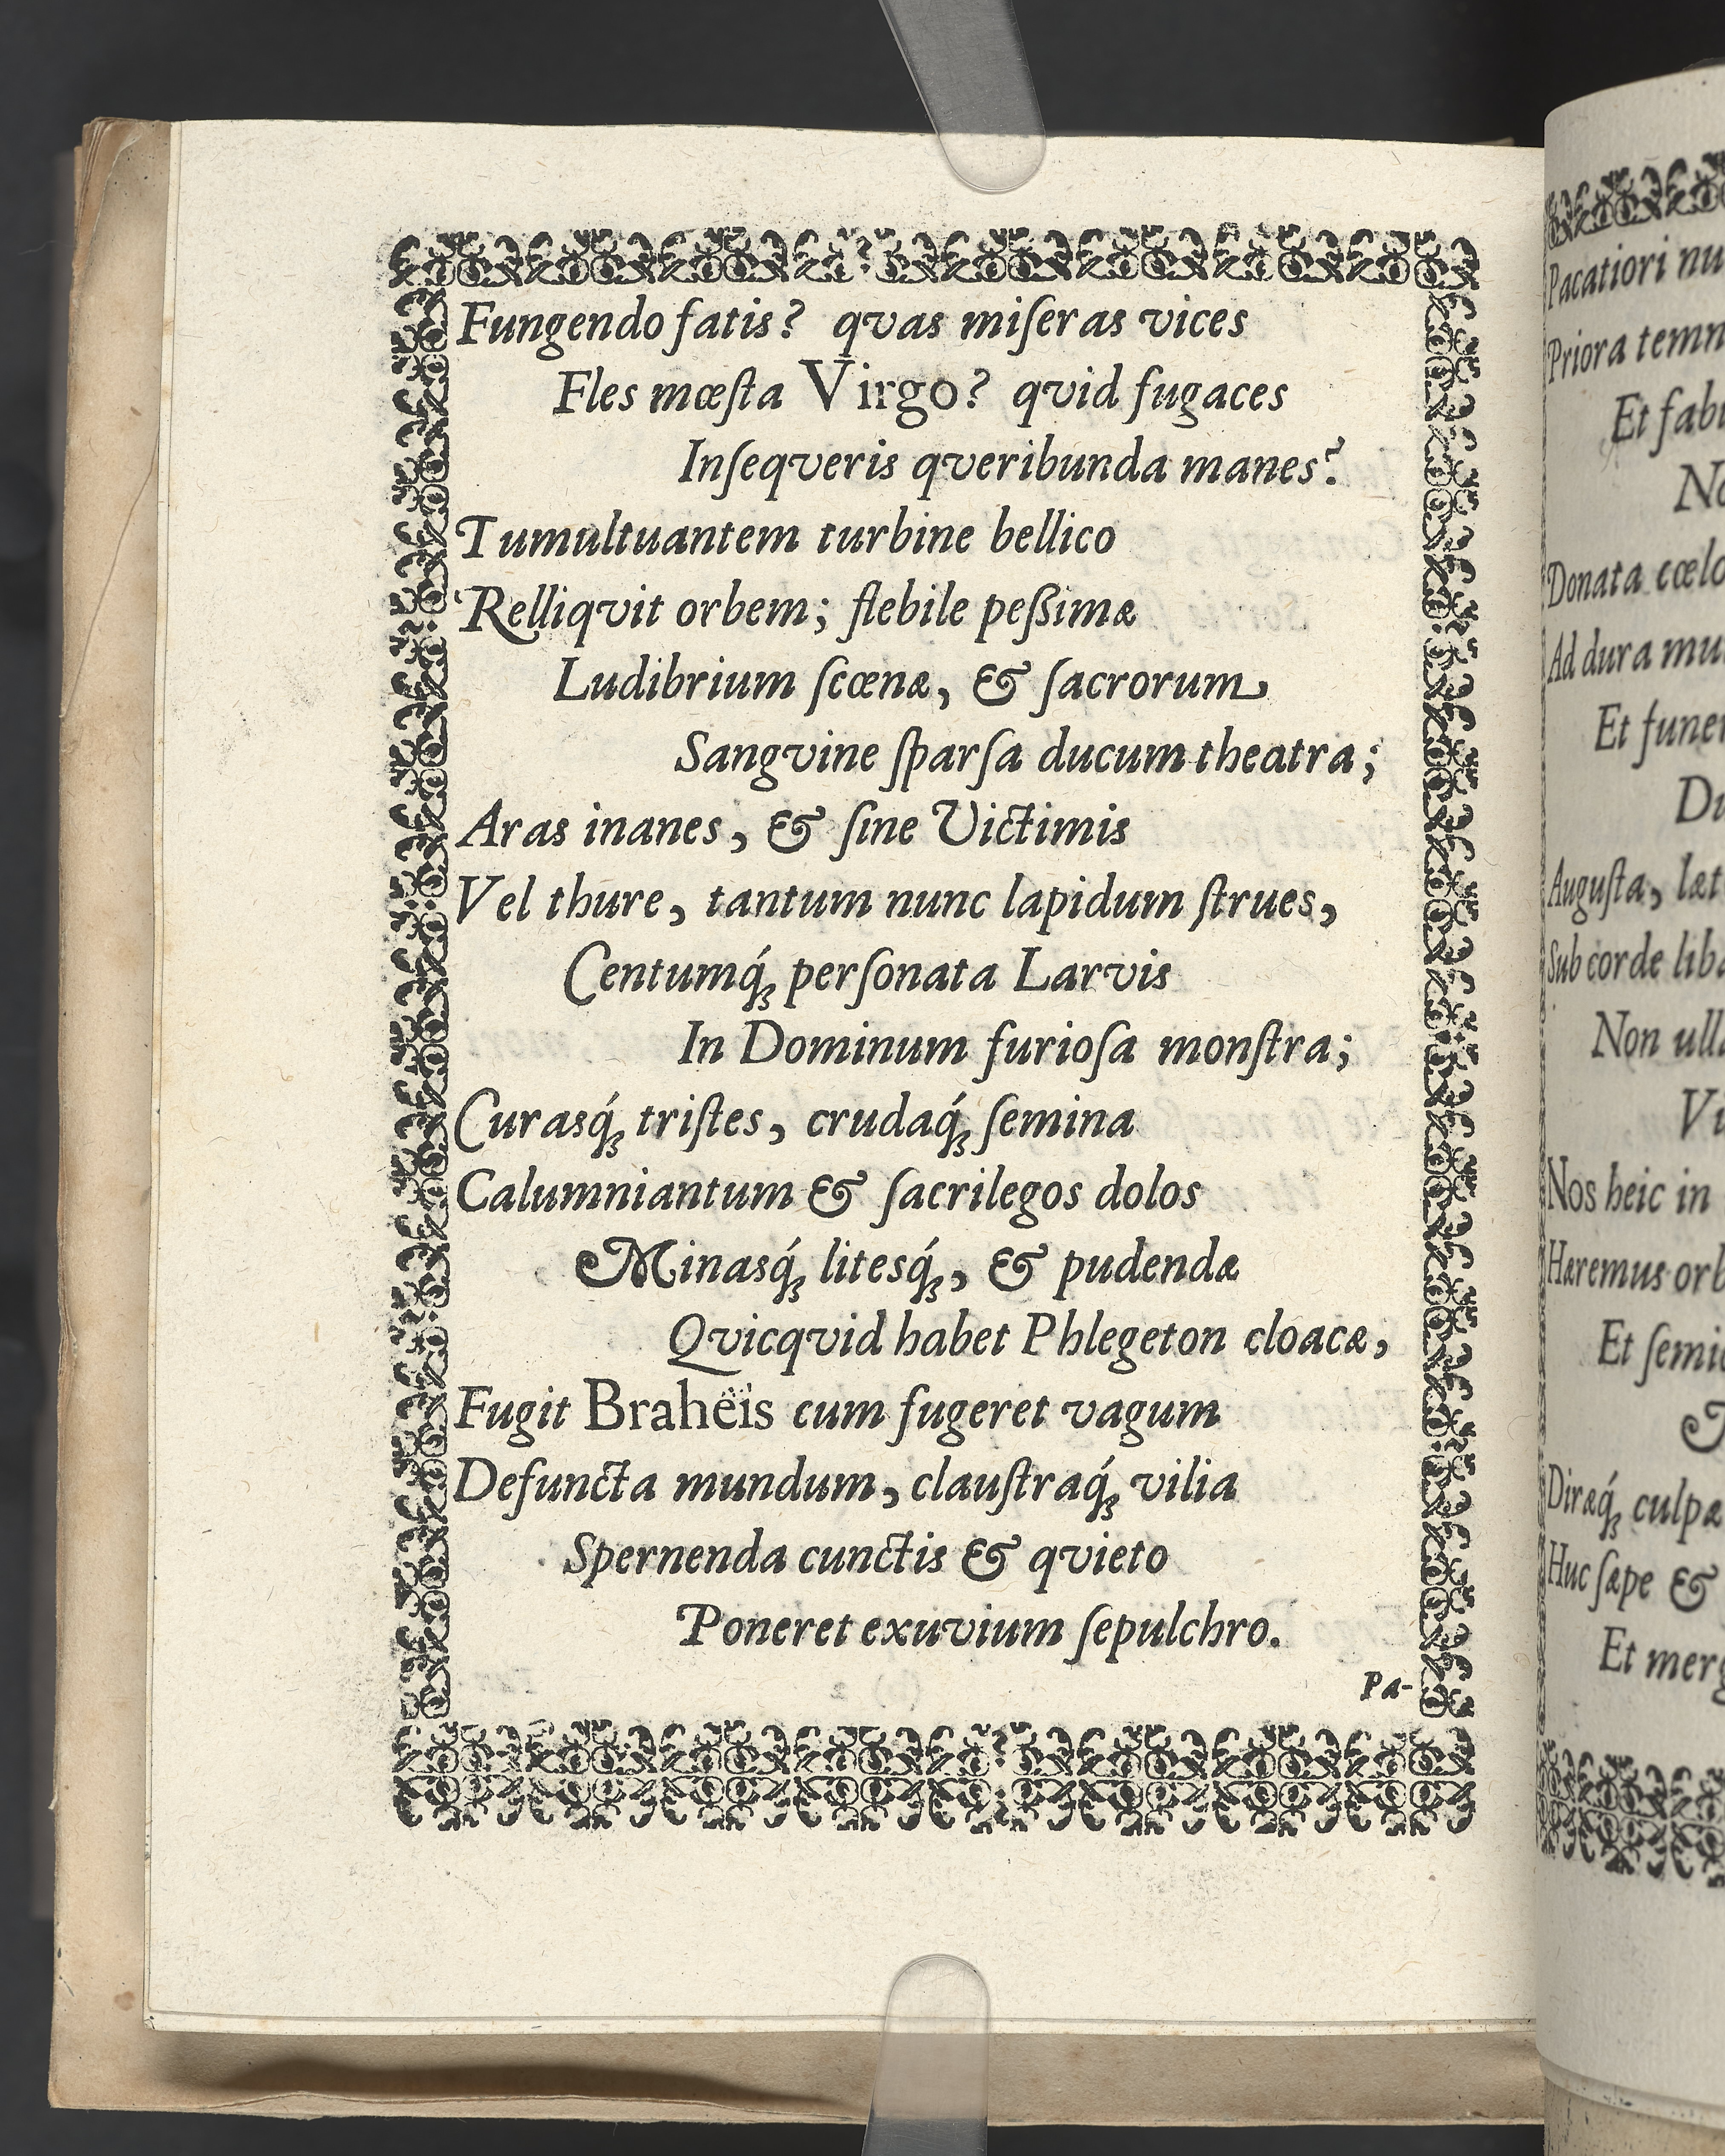 Fungendo fatis? qvas miſeras vices
Fles mœſta Virgo? qvid fugaces
Inſeqveris qveribunda manes?
Tumultuantem turbine bellico
Relliqvit orbem; flebile peßimæ
Ludibrium ſcœnæ, & ſacrorum
Sangvine ſparſa ducum theatra;
Aras inanes, & ſine Victimis
Vel thure, tantum nunc lapidum ſtrues,
Centumq́ꝫ perſonata Larvis
In Dominum furioſa monſtra;
Curasq́ꝫ triſtes, crudaq́ꝫ ſemina
Calumniantum & ſacrilegos dolos
Minasq́ꝫ litesq́ꝫ, & pudendæ
Qvicqvid habet Phlegeton cloacæ,
Fugit Brahëis cum fugeret vagum
Defuncta mundum, clauſtraq́ꝫ vilia
Spernenda cunctis & qvieto
Poneret exuvium ſepulchro.
Pa-
Pacatiori
Priora
Et
Donata
Ad dura
Et
Auguſta,
Sub corde
Non
Nos heic in
Hæremus
Et
Diræq́ꝫ culpæ
Huc ſæpe &
Et